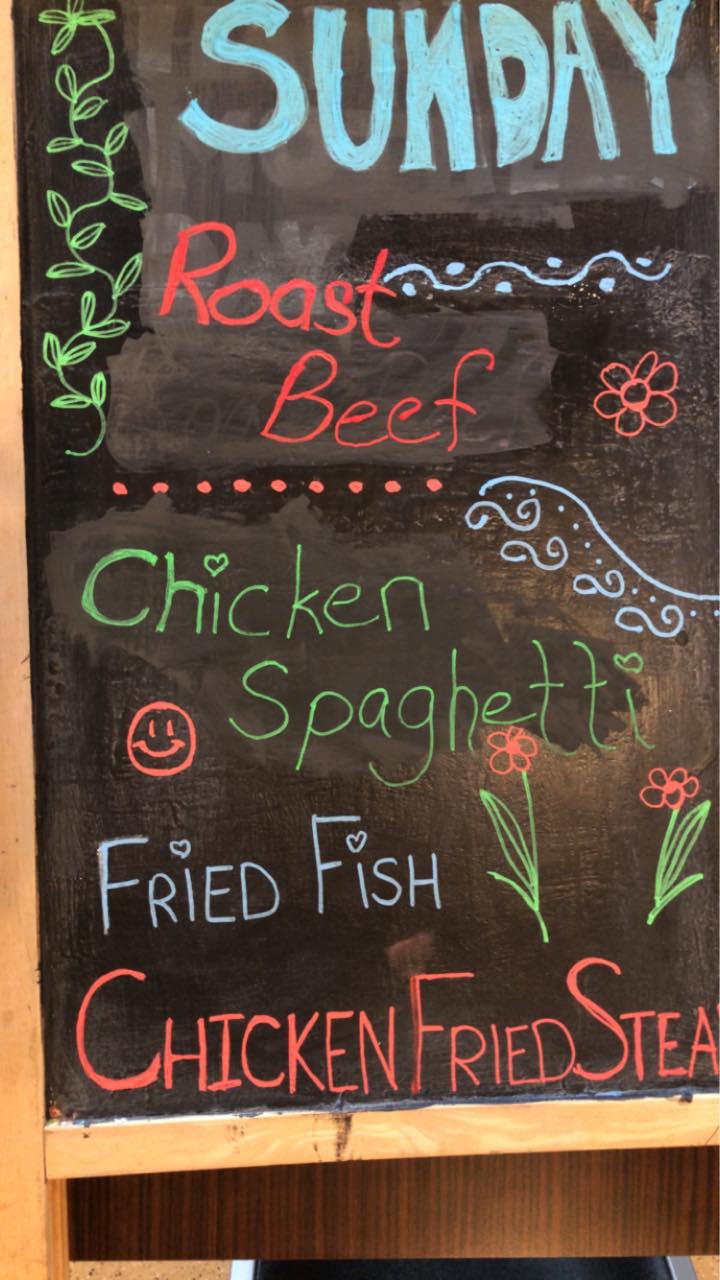 SUNDAY
Roast
Beef
Chicken
Spaghetti
FRIED FISH
CHICKEN FRIED STEA